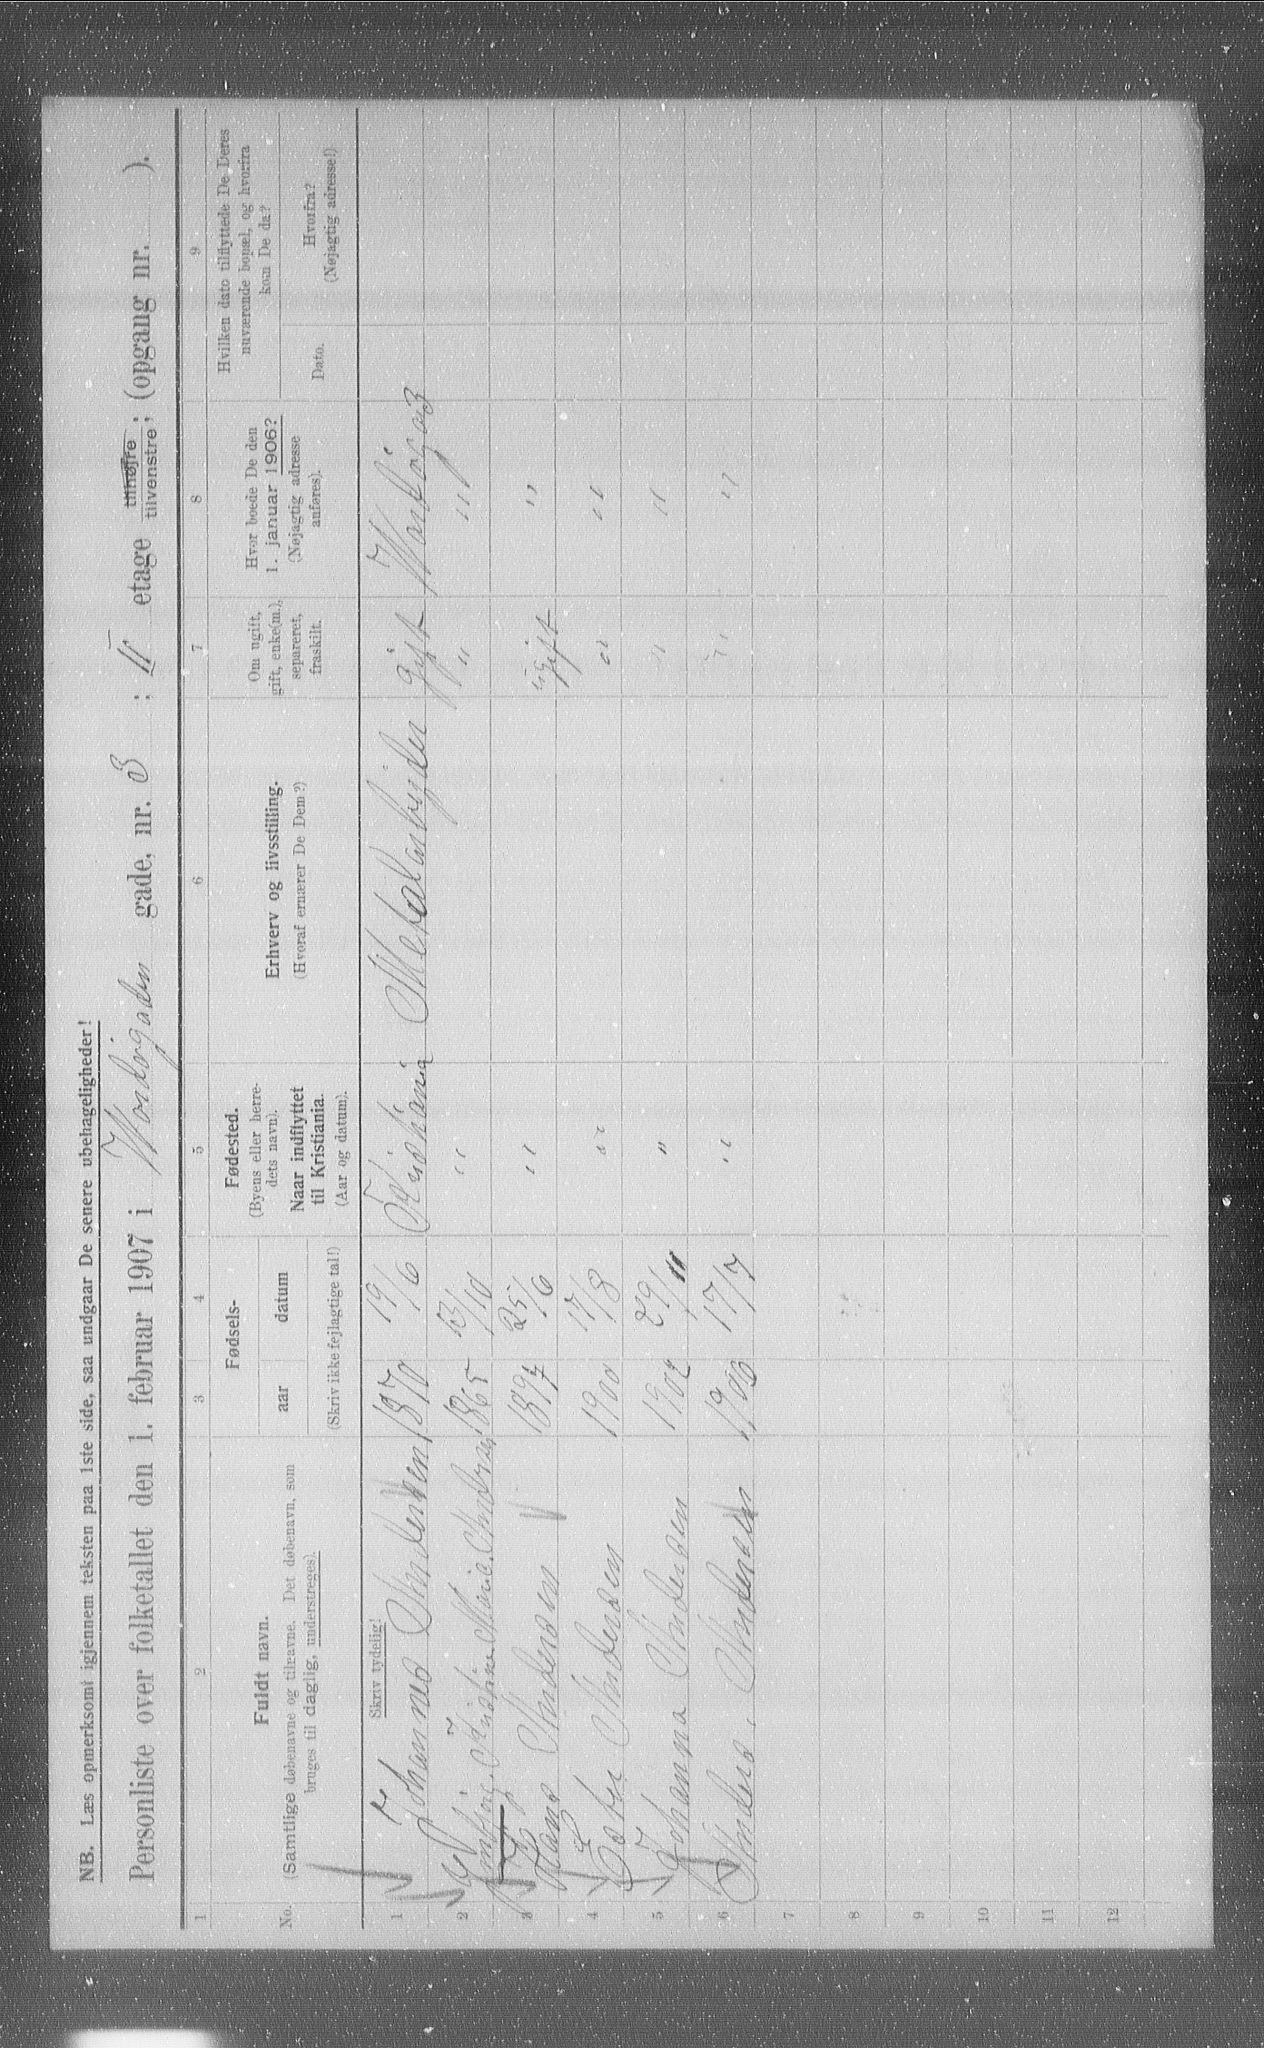 NB. Læs opmerksomt igjennem teksten paa 1ste side, saa undgaar De senere ubehageligheder!
Personliste over folketallet den 1. februar 1907 i Mandalsgaden gade, nr. 3 ; II etage tilhøjre tilvenstre ; (opgang nr. ).
1 2 3 4 5 6 7 8 9
No.
Fuldt navn.
(Samtlige døbenavne og tilnavne. Det døbenavn, som
bruges til daglig, understreges).
Fødsels-
aar datum
(Skriv ikke fejlagtige tal!)
Fødested.
(Byens eller herre-
dets navn).
Naar indflyttet
til Kristiania.
(Aar og datum).
Erhverv og livsstilling.
(Hvoraf ernærer De Dem?)
Om ugift,
gift, enke(m.),
separeret,
fraskilt.
Hvor boede De den
1. januar 1906?
(Nøjagtig adresse
anføres).
Hvilken dato tilflyttede De Deres
nuværende bopæl, og hvorfra
kom De da?
Dato.
Hvorfra?
(Nøjagtig adresse!)
Skriv tydelig!
1 Johannes Andersen 1870 19/6 Kristiania Metalarbejder gift
2 Kristine Maria Andersen 1865 13/10 " " "
3 Hans Andersen 1897 25/6 " ugift "
4 Andersen 1900 17/8 " " "
5 Johanna Andersen 1902 29/11 " " "
6 Anders Andersen 1906 17/7 " " "
7
8
9
10
11
12